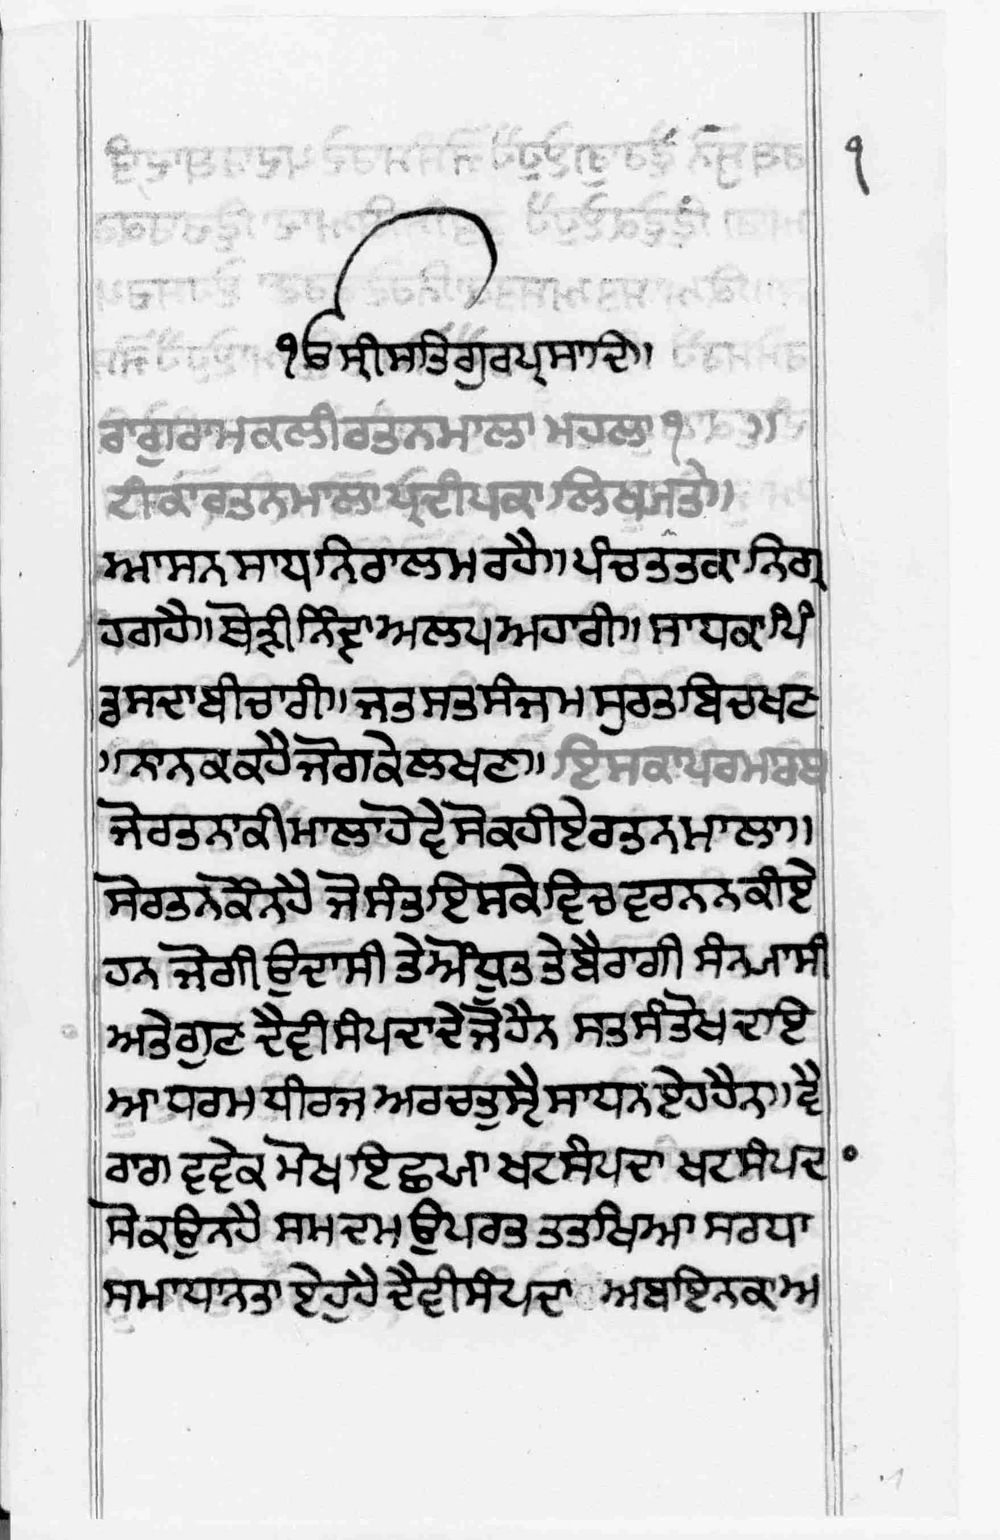 ੧
ੴ ਸ੍ਰੀ ਸਤਿਗੁਰਪ੍ਰਸਾਦਿ॥
ਰਾਗੁ ਰਾਮਕਲੀ ਰਤਨਮਾਲਾ ਮਹਲਾ ੧ ॥
ਟੀਕਾ ਰਤਨਮਾਲਾ ਪ੍ਰਦੀਪਕਾ ਲਿਖਯਤੇ॥
ਆਸਨ ਸਾਧ ਨਿਰਾਲਮ ਰਹੈ॥ ਪੰਚ ਤਤ ਕਾ ਨਿਗ੍ਰ
ਹ ਗਹੈ॥ ਥੋੜੀ ਨਿੰਦ੍ਰਾ ਅਲਪ ਅਹਾਰੀ॥ ਸਾਧ ਕਾ ਪਿੰ
ਡੁ ਸਦਾ ਬੀਚਾਰੀ॥ ਜਤ ਸਤ ਸੰਜਮ ਸੁਰਤ ਬਿਚਖਣ
॥ ਨਾਨਕ ਕਹੈ ਜੋਗ ਕੇ ਲਖਣ॥ ਇਸ ਕਾ ਪਰਮਰਥ
ਜੋ ਰਤਨਾ ਕੀ ਮਾਲਾ ਹੋਵੇ ਸੋ ਕਹੀਏ ਰਤਨਮਾਲਾ॥
ਸੋ ਰਤਨ ਕੌਨ ਹੈ ਜੋ ਸੰਤ ਇਸ ਕੇ ਵਿਚ ਵਰਨਨ ਕੀਏ
ਹਨ ਜੋਗੀ ਉਦਾਸੀ ਤੇ ਔਧੂਤ ਤੇ ਬੈਰਾਗੀ ਸੰਨਯਾਸੀ
ਅਤੇ ਗੁਣ ਦੈਵੀ ਸੰਪਦਾ ਦੇ ਜੋ ਹੈਨ ਸਤ ਸੰਤੋਖ ਦਇ
ਆ ਧਰਮ ਧੀਰਜ ਅਰ ਚਤੁਸ੍ਟੈ ਸਾਧਨ ਏਹ ਹੈਨ॥ ਵੈ
ਰਾਗ ਵਵੇਕ ਮੋਖ ਇਛਯਾ ਖਟ ਸੰਪਦਾ ਖਟ ਸੰਪਦ
ਸੋ ਕਉਨ ਹੈ ਸਮ ਦਮ ਉਪਰਤ ਤਤਖਿਆ ਸਰਧਾ
ਸਮਾਧਨਤਾ ਏਹੁ ਹੈ ਦੈਵੀ ਸੰਪਦਾ ਅਬ ਇਨਕਾ ਅ